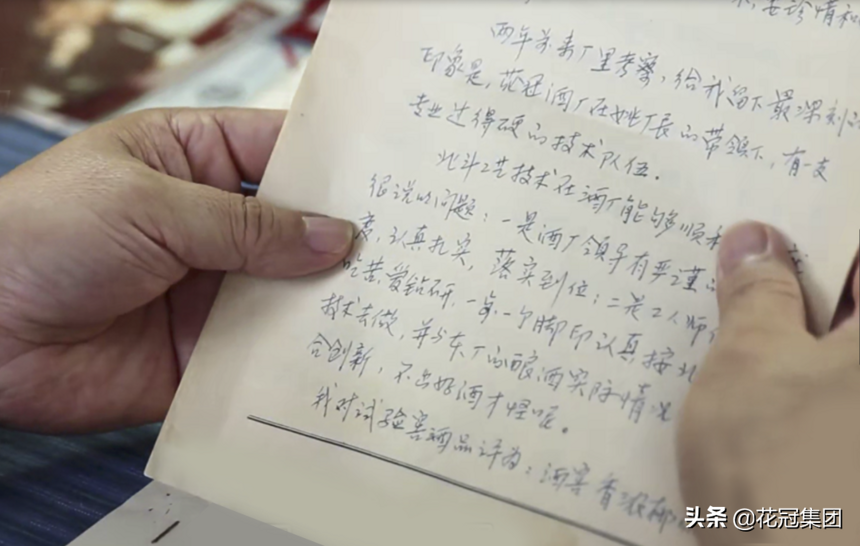 安珍情和
两年前来厂里考察,给我留下最深刻的
印象是,花冠酒厂在她厂长的带领下,有一支
专业过得硬的技术队伍。
北斗工艺技术在酒厂能够顺利
很说明问题:一是酒厂领导有严谨的
度,认真扎实,落实到位;二是工人师
吃苦爱钻研,一步一个脚印认真按北
技术去做,并与本厂的酿酒实际情况
合创新,不出好酒才怪呢。
我对试验窖酒品评为:酒窖香浓郁
头条 @花冠集团